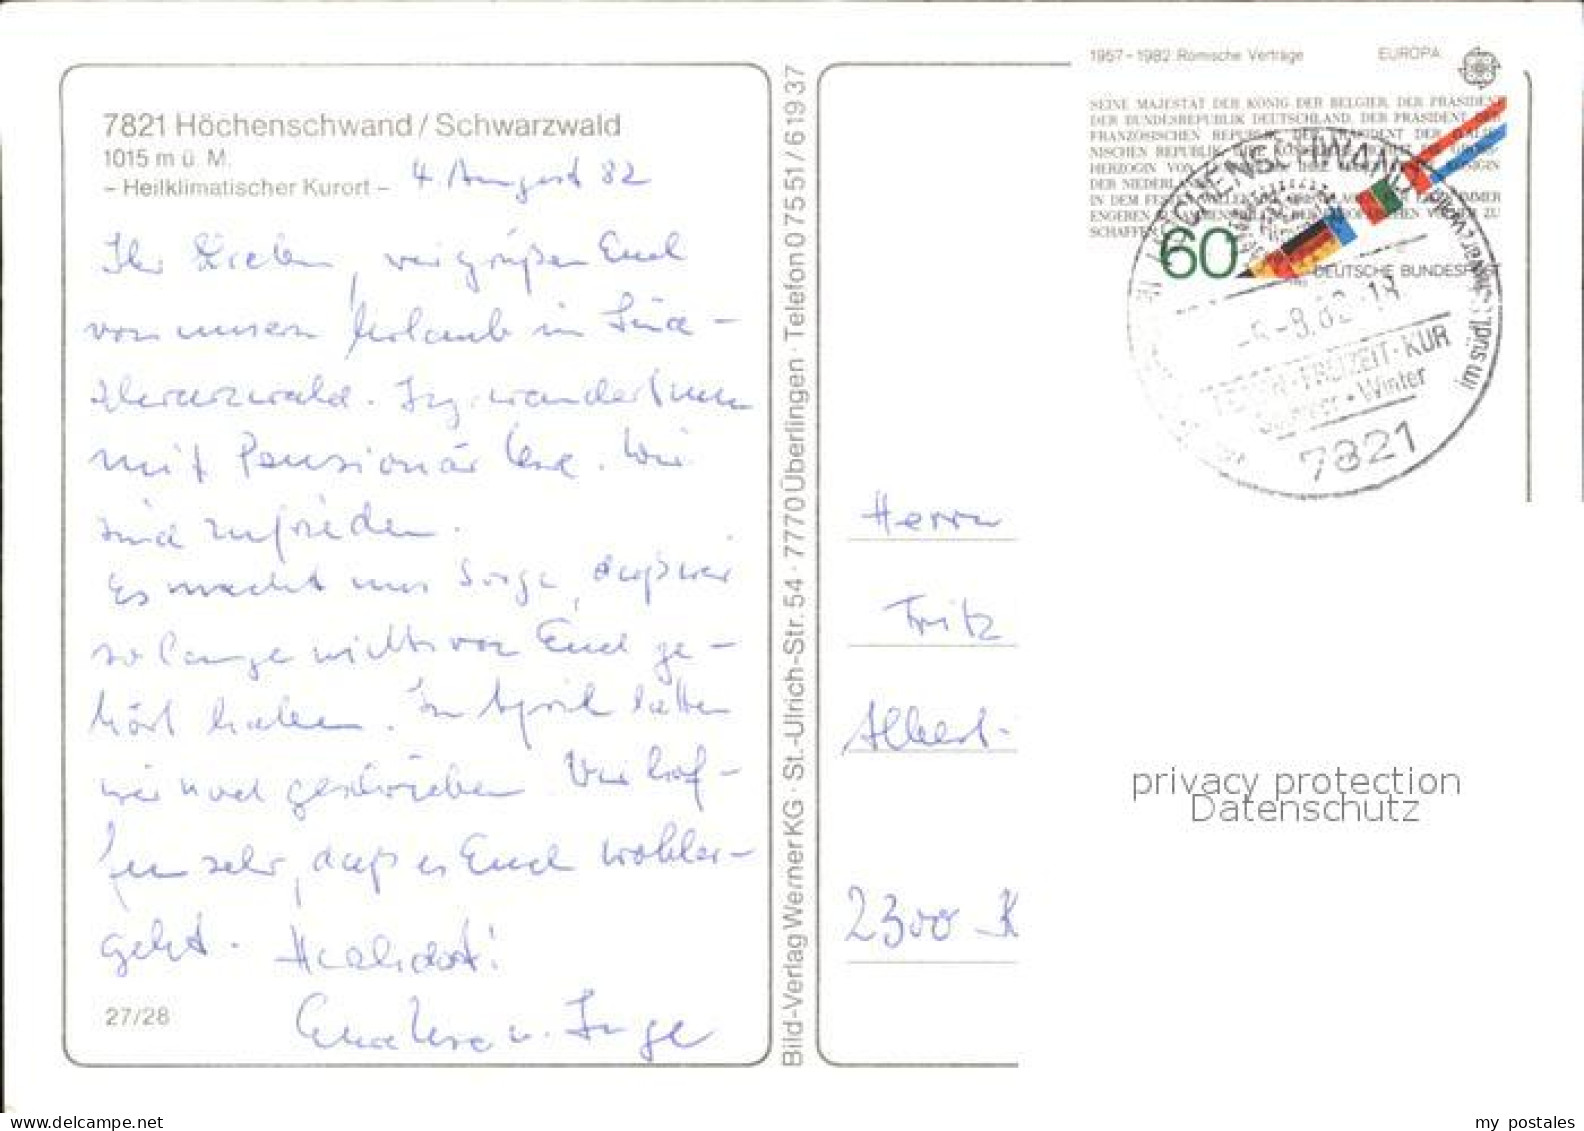 7821 Höchenschwand / Schwarzwald
1015 m ü. M.
– Heilklimatischer Kurort –
4. August 82
Ihr Lieben, wir grüßen Euch
von unserm Urlaub im Süd-
schwarzwald. Inge wandert nun
mit Pensionär. Wir
sind zufrieden.
Es macht uns Sorge, daß wir
so lange nichts von Euch ge-
hört haben. Im April hatten
wir noch geschrieben. Wir hof-
fen sehr, daß es Euch wohler-
geht. Herzlichst!
u. Inge
27/28
Bild-Verlag Werner KG · St.-Ulrich-Str. 54 · 7770 Überlingen · Telefon 0 75 51 / 6 19 37
1957-1982 Römische Verträge EUROPA
SEINE MAJESTÄT DER KÖNIG DER BELGIER, DER PRÄSIDENT
DER BUNDESREPUBLIK DEUTSCHLAND, DER PRÄSIDENT DER
FRANZÖSISCHEN REPUBLIK, DER PRÄSIDENT DER
NISCHEN REPUBLIK,
HERZOGIN VON
DER NIEDERLANDE
IN DEM FESTEN WILLEN
ENGEREN
SCHAFFEN
60
DEUTSCHE BUNDESPOST
HÖCHENSCHWAND
-5.-8.82-18
FERIEN·FREIZEIT·KUR
Sommer • Winter
7821
im südl. Schwarzwald
Herrn
Fritz
Albert-
2300 K
privacy protection
Datenschutz
my postales
www.delcampe.net